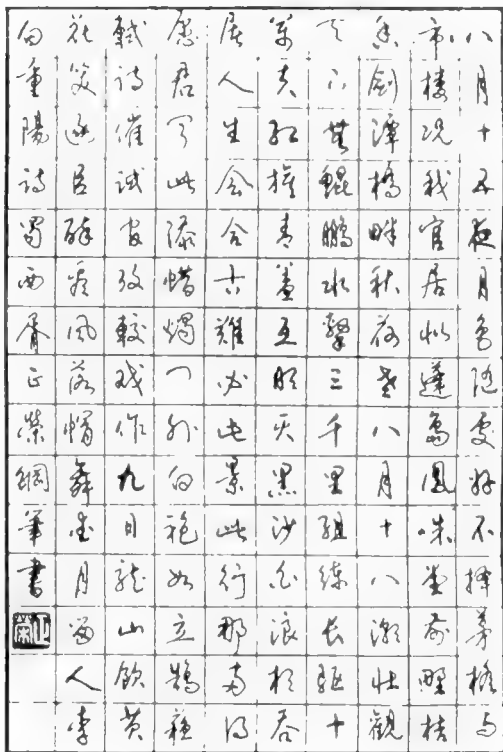 八月十五夜月色隨處好不擇茅檐与
市樓况我官居似蓬島鳳咮堂前野桔
香劍潭橋畔秋荷老八月十八潮壯觀
天下無鯤鵬水擊三千里組練長驅十
萬夫紅旗青蓋互明灭黑沙白浪相吞
屠人生会合古難必此景此行那兩得
愿君聞此添蜡燭门外白袍如立鵠蘇
軾詩催試官考較戏作九日龍山飲黄
花笑逐臣醉看風落帽舞愛月留人李
白重陽詩蜀西胥正榮鋼筆書